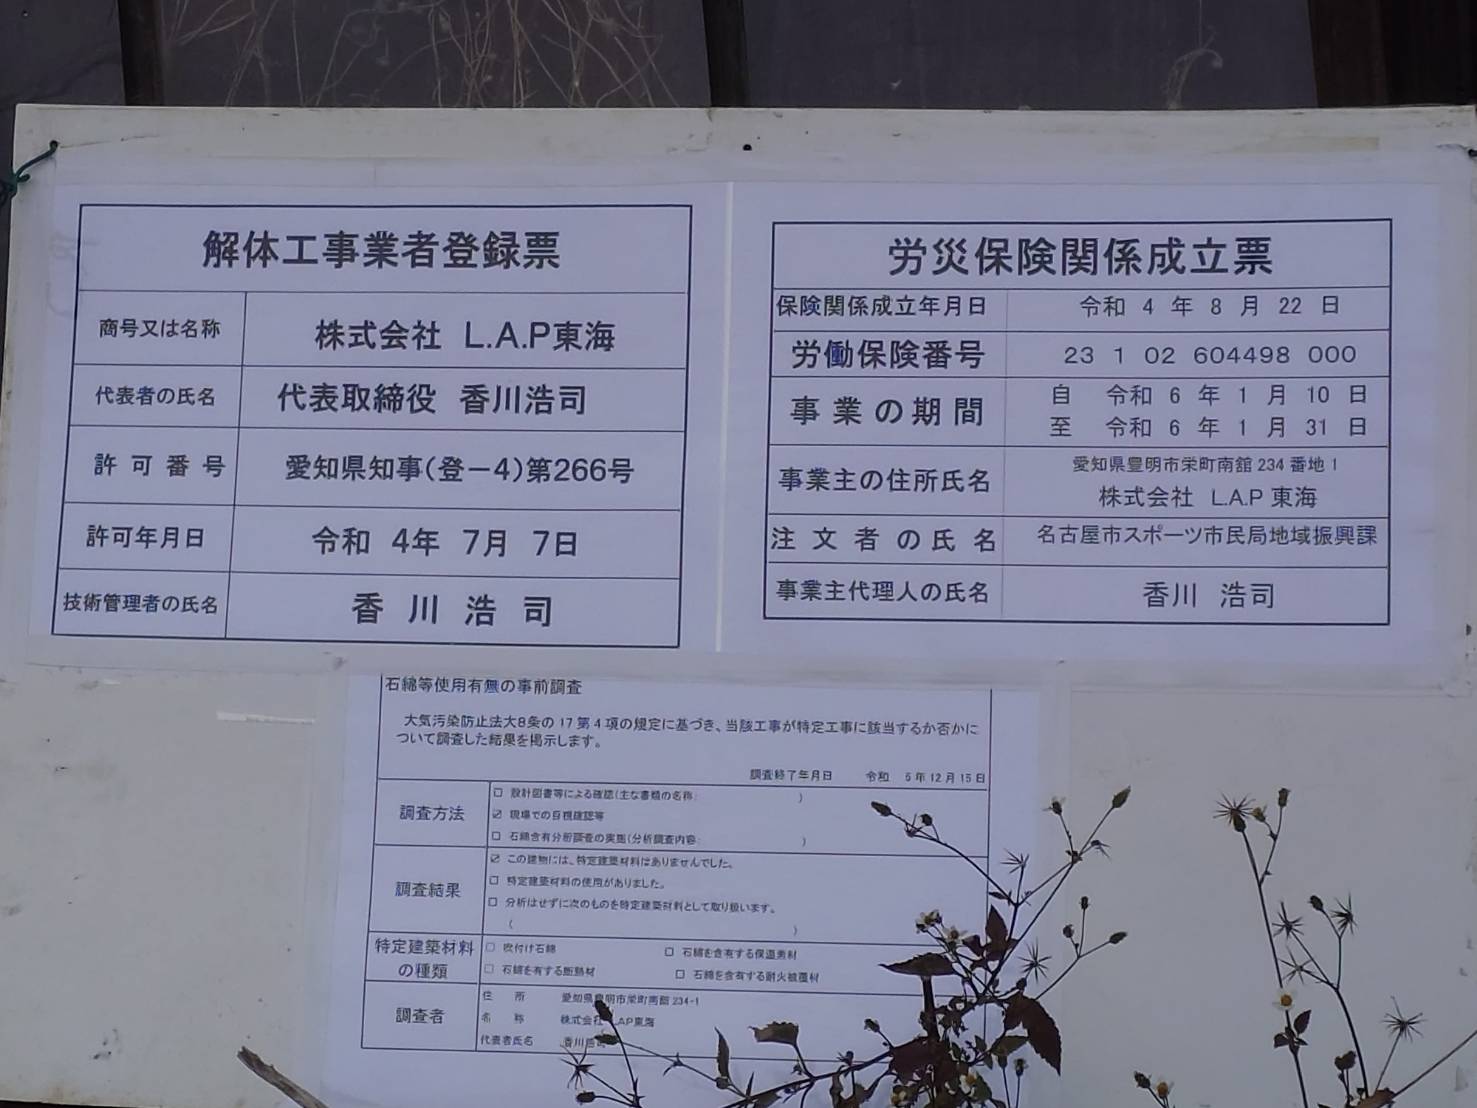 解体工事業者登録票
商号又は名称 株式会社 L.A.P東海
代表者の氏名 代表取締役 香川浩司
許可番号 愛知県知事(登－4)第266号
許可年月日 令和 4年 7月 7日
技術管理者の氏名 香川浩司
労災保険関係成立票
保険関係成立年月日 令和 4 年 8 月 22 日
労働保険番号 23 1 02 604498 000
事業の期間 自 令和 6 年 1 月 10 日
至 令和 6 年 1 月 31 日
事業主の住所氏名 愛知県豊明市栄町南舘 234 番地 1
株式会社 L.A.P 東海
注文者の氏名 名古屋市スポーツ市民局地域振興課
事業主代理人の氏名 香川 浩司
石綿等使用有無の事前調査
大気汚染防止法大8条の 17 第 4 項の規定に基づき、当該工事が特定工事に該当するか否かに
ついて調査した結果を掲示します。
調査終了年月日 令和 5年 12月 15日
調査方法
□ 設計図書等による確認(主な書類の名称: )
☑ 現場での目視確認等
□ 石綿含有分析調査の実施(分析調査内容: )
調査結果
☑ この建物には、特定建築材料はありませんでした。
□ 特定建築材料の使用がありました。
□ 分析はせずに次のものを特定建築材料として取り扱います。
( )
特定建築材料の種類
□ 吹付け石綿 □ 石綿を含有する保温素材
□ 石綿を有する断熱材 □ 石綿を含有する耐火被覆材
調査者
住所 愛知県豊明市栄町南舘 234-1
名称 株式会社 L.AP東海
代表者氏名 香川浩司